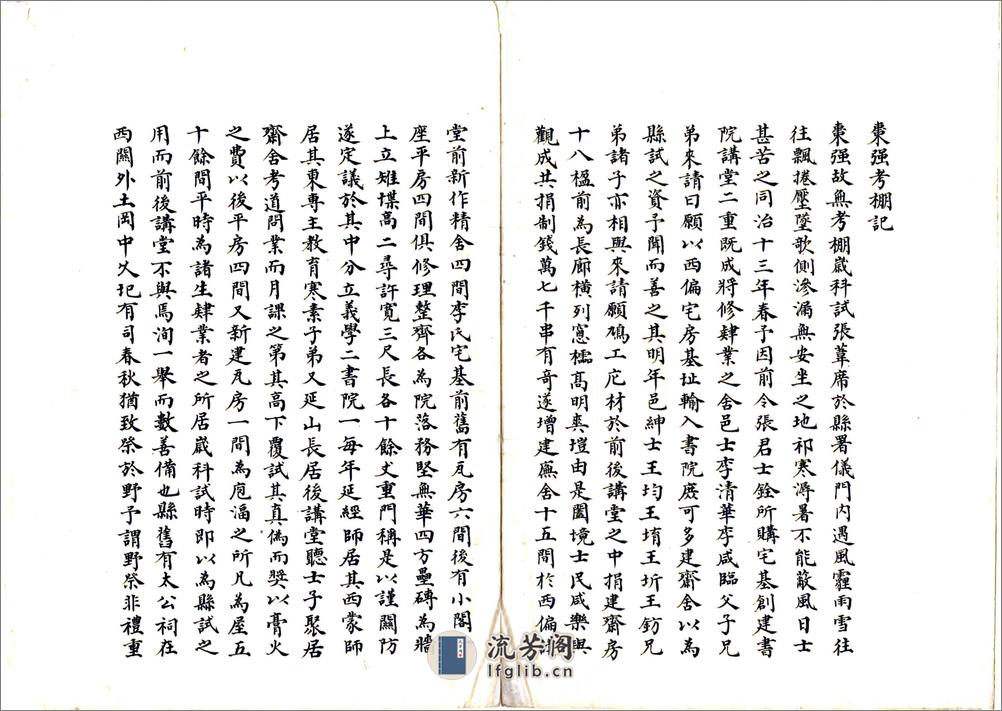 棗强考棚記
棗强故無考棚歲科試張葦席於縣署儀門內遇風霾雨雪往
往飄捲壓墜欹側滲漏無安坐之地祁寒溽暑不能蔽風日士
甚苦之同治十三年春予因前令張君士銓所購宅基創建書
院講堂二重既成將修肄業之舍邑士李清華李咸臨父子兄
弟來請曰願以西偏宅房基址輸入書院庶可多建齋舍以為
縣試之資予聞而善之其明年邑紳士王均王堉王圻王钫兄
弟諸子亦相與來請願鳩工庀材於前後講堂之中捐建齋房
十八楹前為長廊橫列窻櫺高明爽塏由是闔境士民咸樂與
觀成共捐制錢萬七千串有奇遂增建廡舍十五間於西偏
堂前新作精舍四間李氏宅基前舊有瓦房六間後有小閣
座平房四間俱修理整齊各為院落務堅無華四方壘磚為牆
上立雉堞高二尋許寬三尺長各十餘丈重門稱是以謹關防
遂定議於其中分立義學二書院一每年延經師居其西蒙師
居其東專主教育寒素子弟又延山長居後講堂聽士子聚居
齋舍考道問業而月課之第其高下覆試其真偽而奬以膏火
之費以後平房四間又新建瓦房一間為庖湢之所凡為屋五
十餘間平時為諸生肄業者之所居歲科試時即以為縣試之
用而前後講堂不與焉洵一舉而數善備也縣舊有太公祠在
西關外土岡中久圮有司春秋猶致祭於野予謂野祭非禮重
流芳閣
lfglib.cn